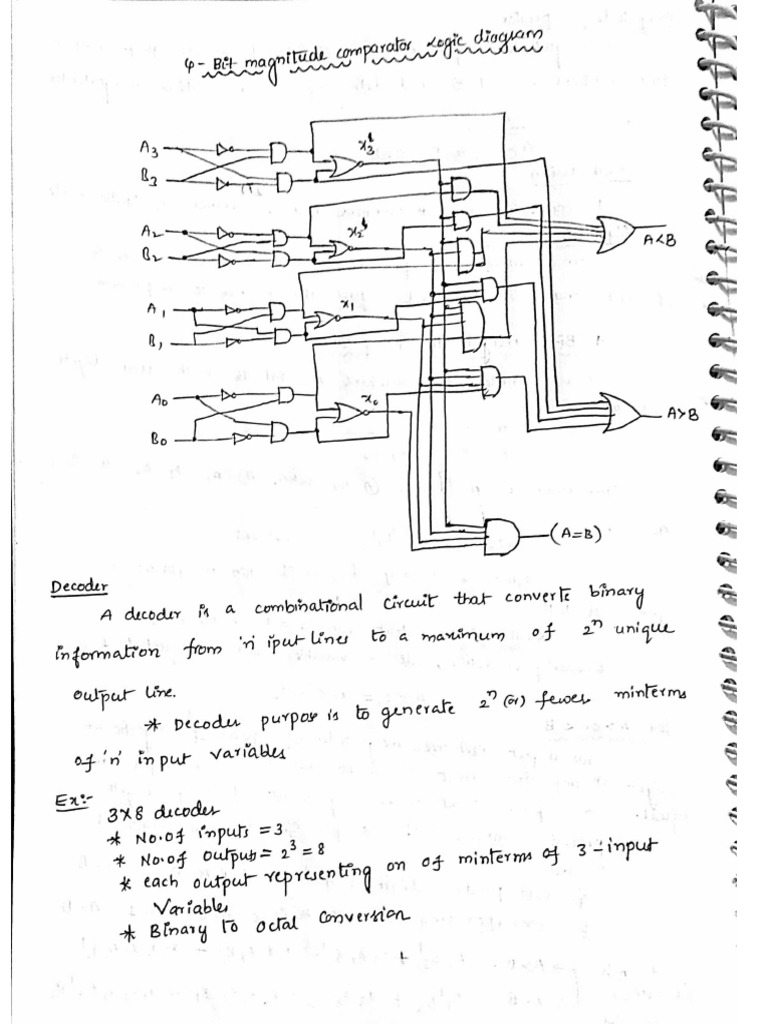 4-Bit magnitude comparator Logic diagram
A3
B3
x3
A2
B2
x2
A<B
A1
B1
x1
A0
B0
x0
A>B
(A=B)
Decoder
A decoder is a combinational circuit that converts binary
information from 'n' iput lines to a maximum of 2^n unique
output line.
* Decoder purpose is to generate 2^n (or) fewer minterms
of 'n' input variables
Ex:-
3x8 decoder
* No.of inputs = 3
* No.of outputs = 2^3 = 8
* each output representing on of minterms of 3-input
Variables
* Binary to octal conversion